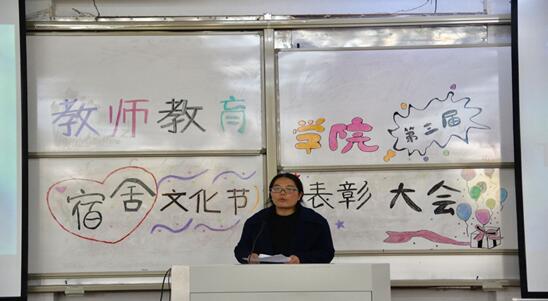 教师教育学院第三届
宿舍文化节表彰大会